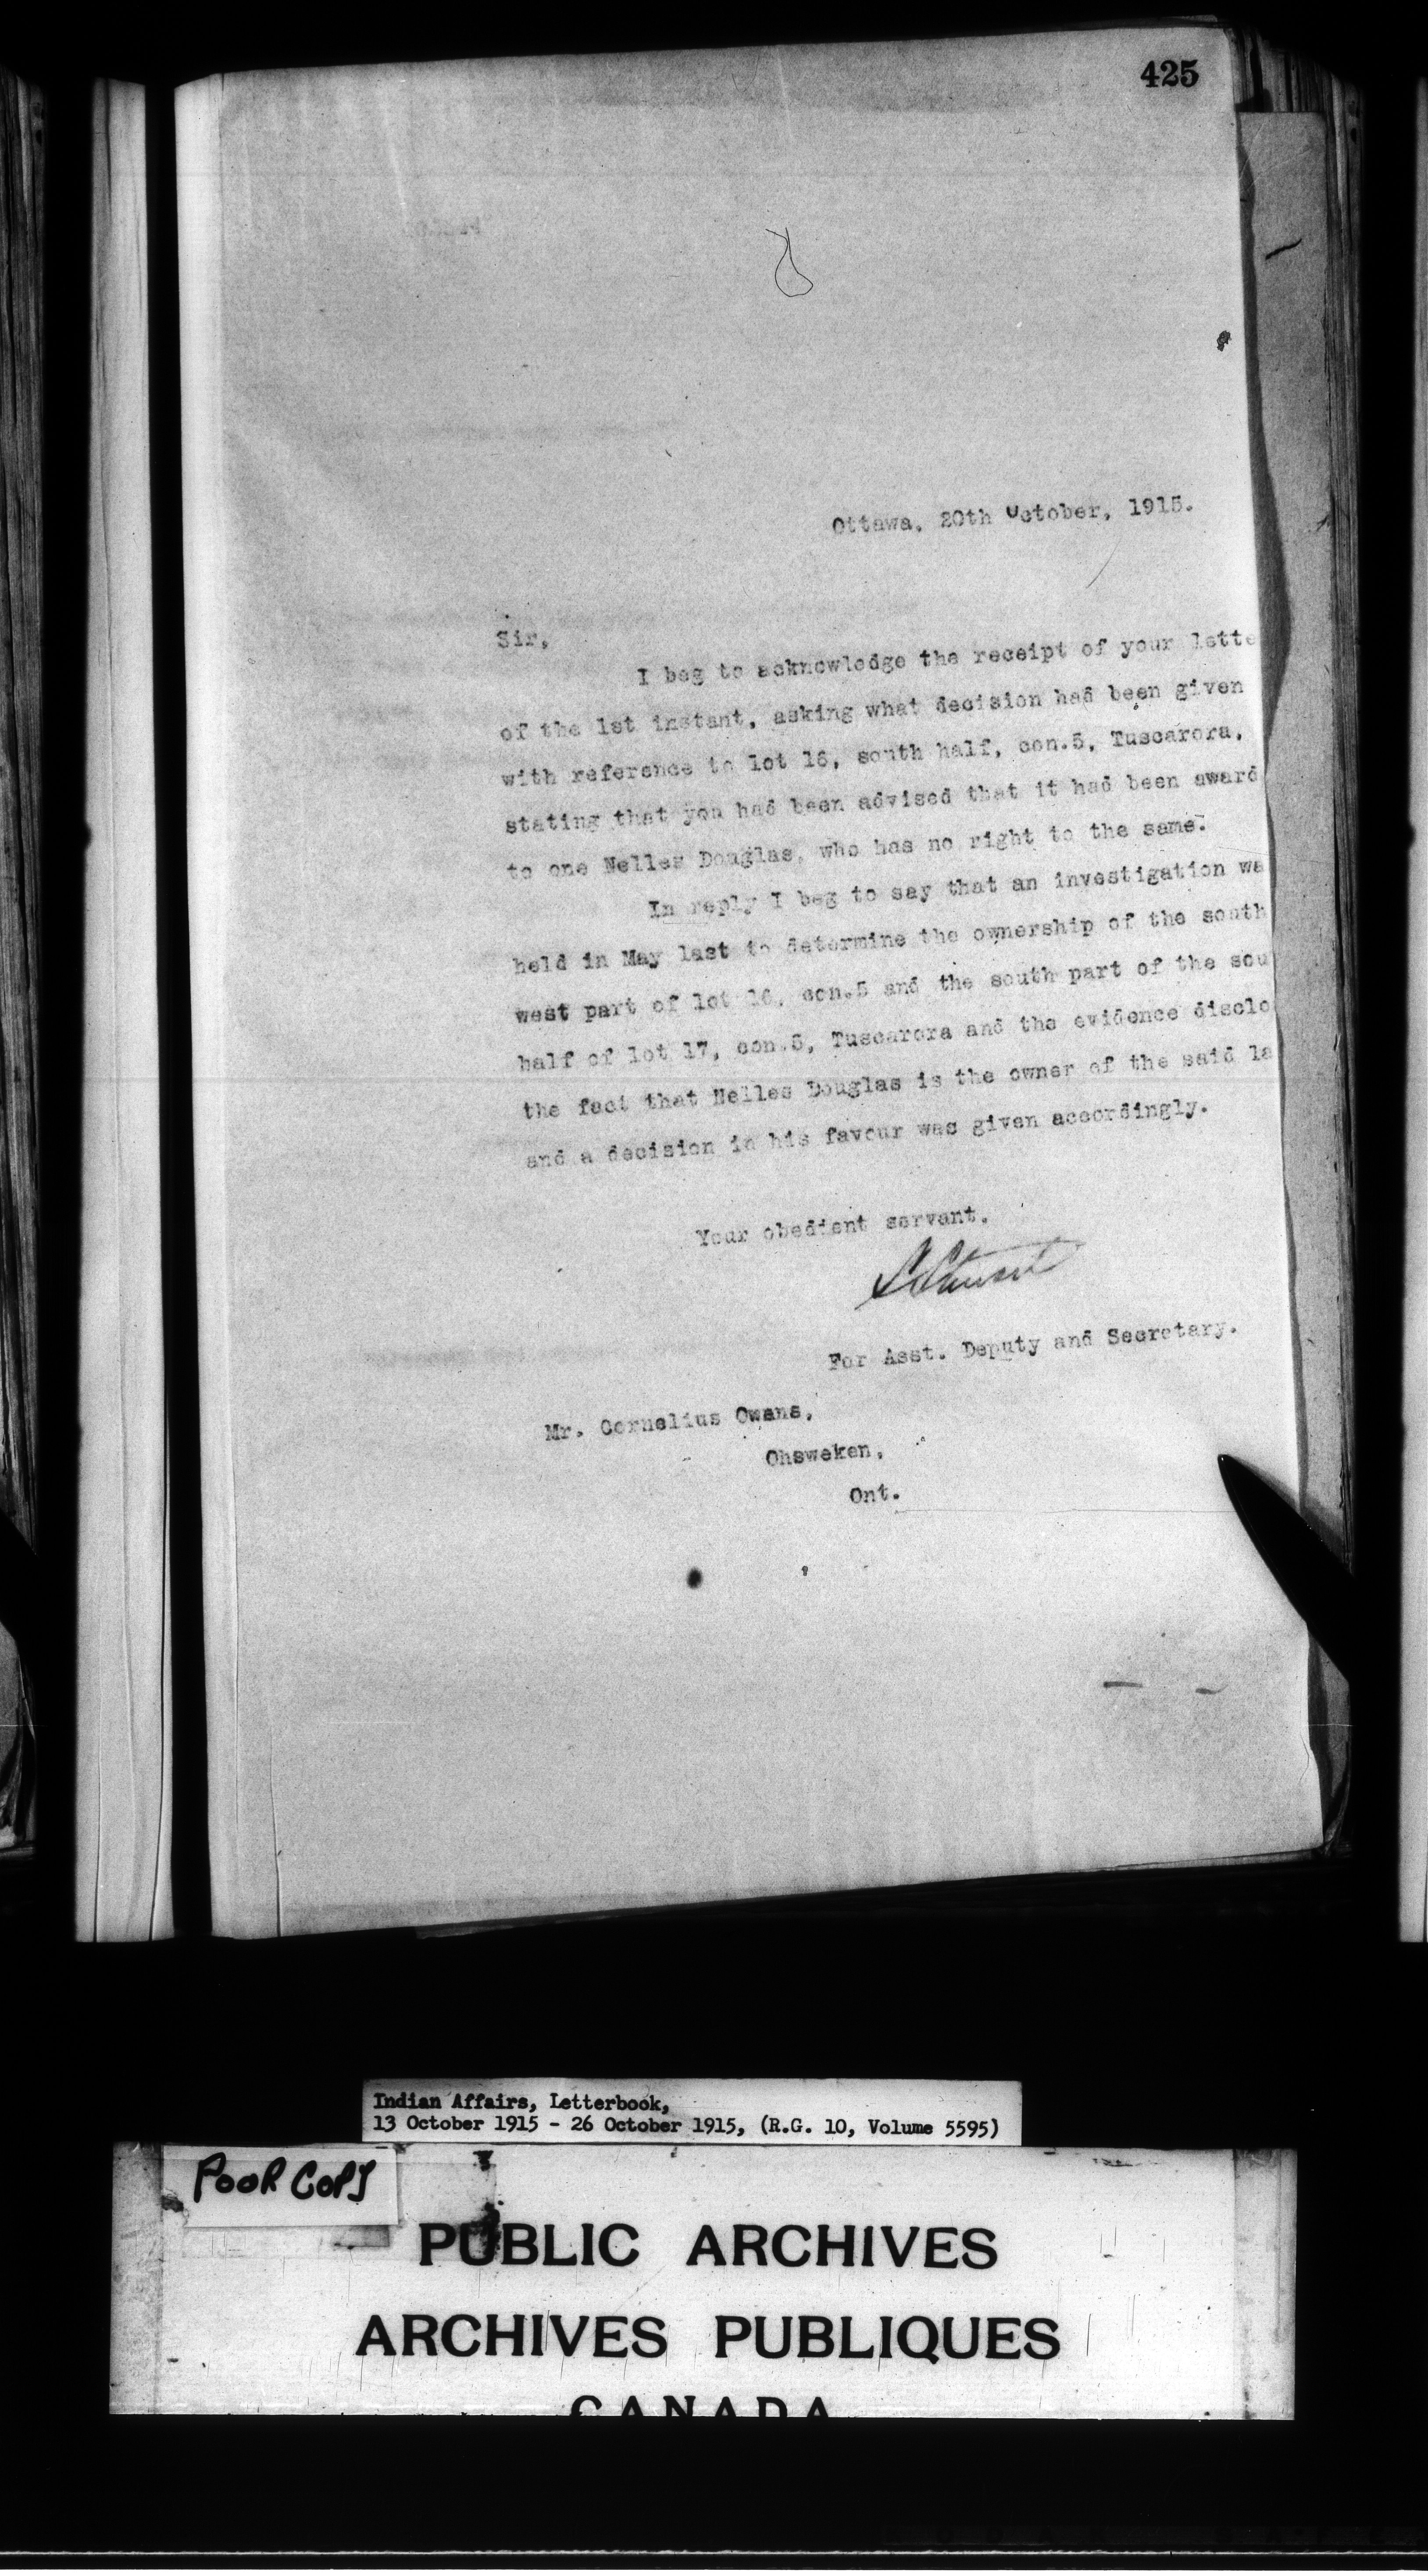 425
Ottawa, 20th October, 1915.
Sir,
I beg to acknowledge the receipt of your lette
of the 1st instant, asking what decision had been given
with reference to lot 16, south half, con.5, Tuscarora,
stating that you had been advised that it had been award
to one Nelles Douglas, who has no right to the same.
In reply I beg to say that an investigation wa
held in May last to determine the ownership of the south
west part of lot 16, con.5 and the south part of the sou
half of lot 17, con.5, Tuscarora and the evidence disclo
the fact that Nelles Douglas is the owner of the said la
and a decision in his favour was given accordingly.
Your obedient servant,
S Stewart
For Asst. Deputy and Secretary.
Mr. Cornelius Owens,
Ohsweken,
Ont.
Indian Affairs, Letterbook,
13 October 1915 - 26 October 1915, (R.G. 10, Volume 5595)
POOR COPY
PUBLIC ARCHIVES
ARCHIVES PUBLIQUES
CANADA